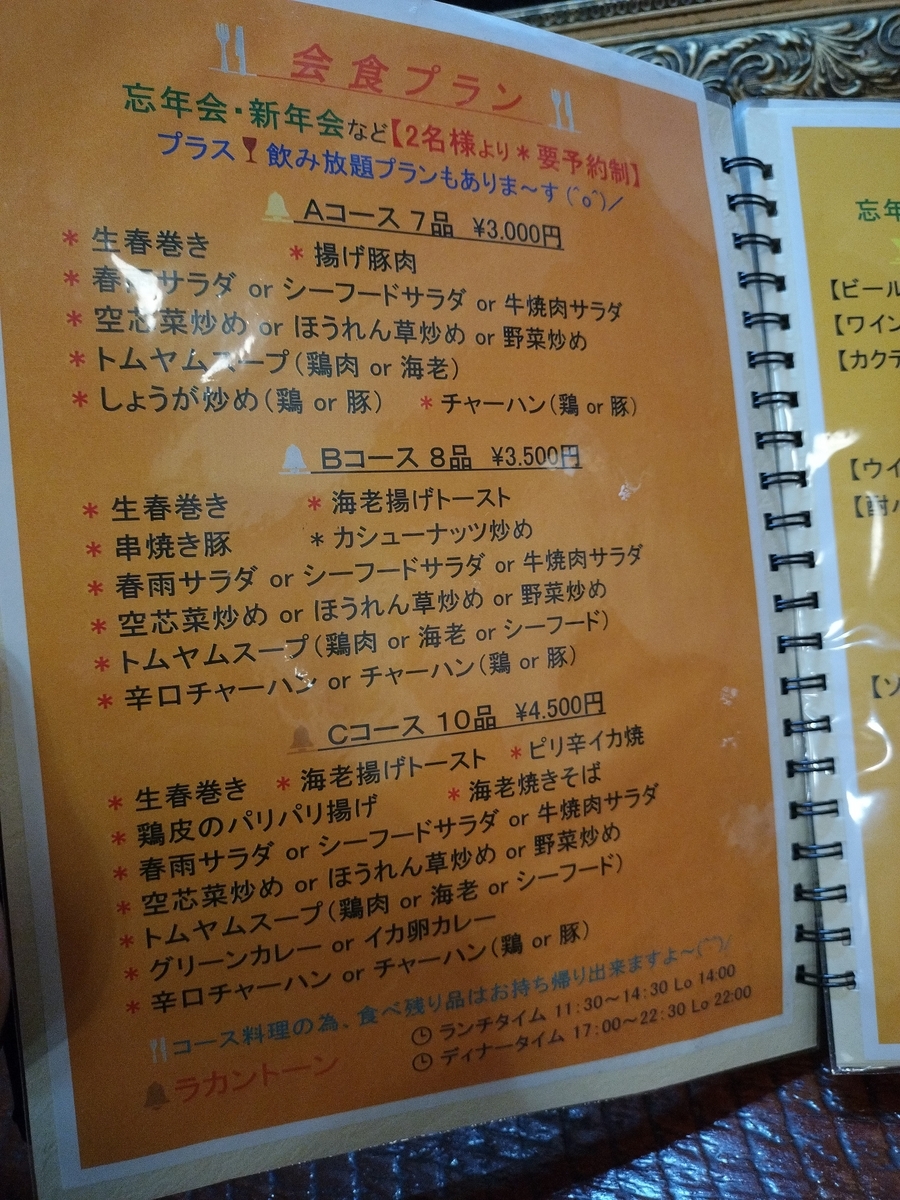 会食プラン
忘年会・新年会など【2名様より＊要予約制】
プラス 飲み放題プランもありま～す (^o^)／
Aコース 7品 ¥3.000円
＊生春巻き ＊揚げ豚肉
＊春雨サラダ or シーフードサラダ or 牛焼肉サラダ
＊空芯菜炒め or ほうれん草炒め or 野菜炒め
＊トムヤムスープ(鶏肉 or 海老)
＊しょうが炒め(鶏 or 豚) ＊チャーハン(鶏 or 豚)
Bコース 8品 ¥3.500円
＊生春巻き ＊海老揚げトースト
＊串焼き豚 ＊カシューナッツ炒め
＊春雨サラダ or シーフードサラダ or 牛焼肉サラダ
＊空芯菜炒め or ほうれん草炒め or 野菜炒め
＊トムヤムスープ(鶏肉 or 海老 or シーフード)
＊辛口チャーハン or チャーハン(鶏 or 豚)
Cコース 10品 ¥4.500円
＊生春巻き ＊海老揚げトースト ＊ピリ辛イカ焼
＊鶏皮のパリパリ揚げ ＊海老焼きそば
＊春雨サラダ or シーフードサラダ or 牛焼肉サラダ
＊空芯菜炒め or ほうれん草炒め or 野菜炒め
＊トムヤムスープ(鶏肉 or 海老 or シーフード)
＊グリーンカレー or イカ卵カレー
＊辛口チャーハン or チャーハン(鶏 or 豚)
コース料理の為、食べ残り品はお持ち帰り出来ますよ～(^^)/
ランチタイム 11:30～14:30 Lo 14:00
ディナータイム 17:00～22:30 Lo 22:00
ラカントーン
忘年
【ビール
【ワイン
【カクテ
【ウイ
【酎ハ
【ソ